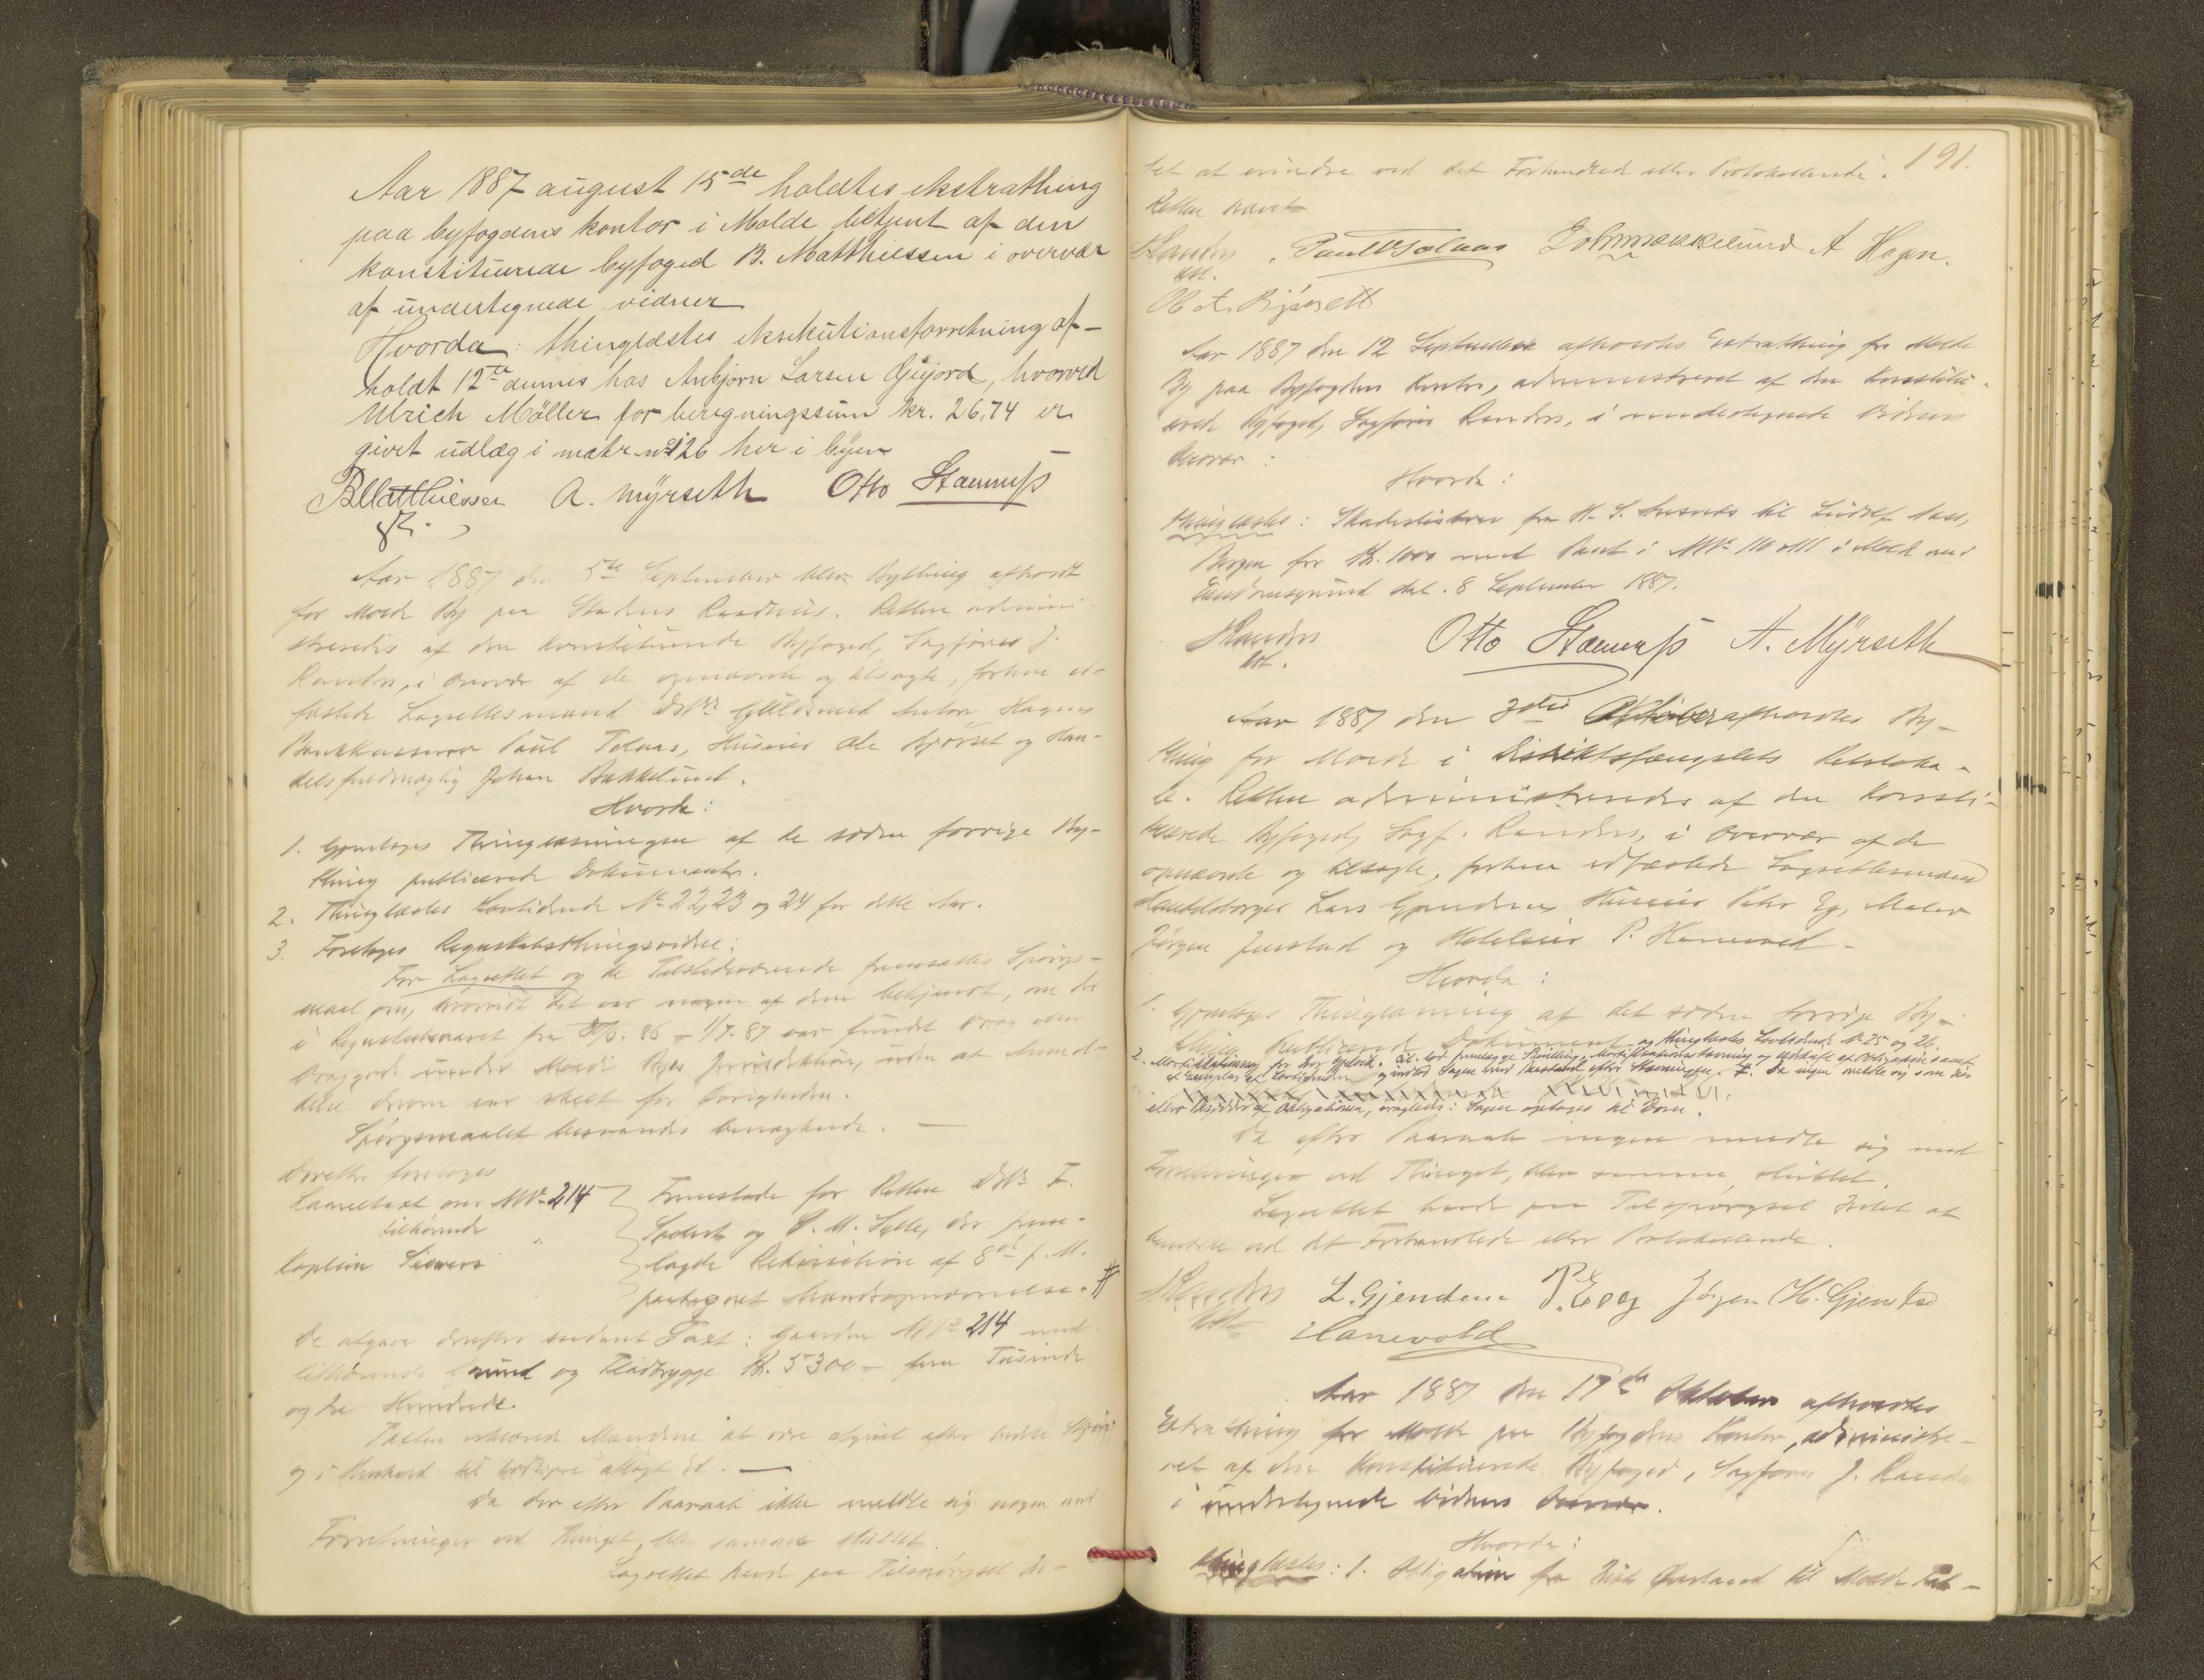 Aar 1887 august 15de holdtes ekstrathing
paa byfogdens kontor i Molde betjent af den
konstituerede byfoged B. Matthiessen i overvær
af undertegnede vidner
Hvorda: thinglæstes eksekutionsforretning af-
holdt 12te dennes hos Anbjørn Larsen Gujord, hvorved
Ulrich Møller for beregningssum kr. 26,74 er
givet udlæg i matr. no 126 her i byen
BMatthiessen A. Myrseth Otto Stamnss
Aar 1887 den 5te September blev Bything afholdt
for Molde By paa Stadens Raadhus. Retten admini-
streredes af den konstituerede Byfoged, Sagfører J.
Randers, i Overvær af de opnævnte og tilsagte, forhen ed-
fæstede Lagrettesmænd DHrr Guldsmed Anton Hagen
Bankkasserer Paul Tolaas, Huseier Ole Bjørset og Han-
delsfuldmægtig Johan Bakkelund.
Hvorda:
1. Gjentoges Thinglæsningen af de siden forrige By-
thing publicerede Dokumenter.
2. Thinglæstes Lovtidende No 22, 23 og 24 for dette Aar.
3. Foretoges Regnskabsthingsvidne:
For Lagrettet og de Tilstedeværende fremsattes Spørgs-
maal om, hvorvidt det var nogen af dem bekjendt, om der
i Regnskabsaaret fra 30/6. 86 - 1/7. 87 var fundet Vrag eller
Vraggods under Molde Byes Jurisdiktion, uden at Anmel-
delse derom var skeet for Øvrigheden.
Spørgsmaalet besvaredes benægtende. —
Derefter foretoges
Laanetaxt over MNo 214
tilhørende
Kaptein Sievers
Fremstode for Retten DHr. F.
og P. M. Sylte, der frem-
lagde Rekvisition af 8de f. M.
paategnet Mandsopnævnelse. #
De afgave derefter saadant Taxt: Gaarden MNo 214 med
tilhørende Grund og Flødbrygge Kr. 5300 - fem Tusinde
og tre Hundrede.
Taxten erklærede Mændene at være afgivet efter bedste Skjøn
og i Henhold til tidligere aflagt Ed. —
Da der efter Paaraab ikke meldte sig nogen med
Forretninger ved Thinget, blev samme sluttet.
Lagrettet havde paa Tilspørgsel In-
191.
tet at erindre ved det Forhandlede eller Protokollerede.
Retten hævet
JRanders Paul Tolaas Joh Bakkelund A Hagen.
kst.
Ole A. Bjørsett
Aar 1887 den 12 September afholdtes Extrathing for Molde
By paa Byfogdens Kontor, administreret af den konstitu-
erede Byfoged, Sagfører Randers, i undertegnede Vidners
Overvær:
Hvorda:
Thinglæstes: Skadesløsbrev fra H. S. til Ludolf
Bergen for Kr. 1000 med Pant i MNo 110 &111 i Molde med
dat. 8 September 1887.
JRanders Otto Stamnss A. Myrseth
kst.
Aar 1887 den 3die Oktober afholdtes By-
thing for Molde i Distriktsfængslets Retsloka-
le. Retten administreredes af den konsti-
tuerede Byfoged, Sagf. Randers, i Overvær af de
opnævnte og tilsagte, forhen edfæstede Lagrettesmænd
Handelsborger Lars Gjendem, Huseier Peter Eeg, Maler
Jørgen Jenstad og Hoteleier P. Hanevold -
Hvorda:
1. Gjentoges Thinglæsning af det siden forrige By-
thing publicerede Dokument og thinglæstes Lovtidende No 25 og 26.
2. Mortifikationssag
eller Besidder af Obligationen, : Sagen optages til Dom.
Da efter Paaraab ingen meldte sig med
Forretninger ved Thinget, blev samme sluttet.
Lagrettet havde paa Tilspørgsel Intet at
bemærke ved det Forhandlede eller Protokollerede.
JRanders L. Gjendem P. Eeg Jørgen H. Gjenstad
kst
Hanevold
Aar 1887 den 17de Oktober afholdtes
Extrathing for Molde paa Byfogdens Kontor, administre-
ret af den konstituerede Byfoged, Sagfører J. Randers
i undertegnede Vidners Overvær.
Hvorda:
Thinglæstes: 1. Obligation fra til Molde